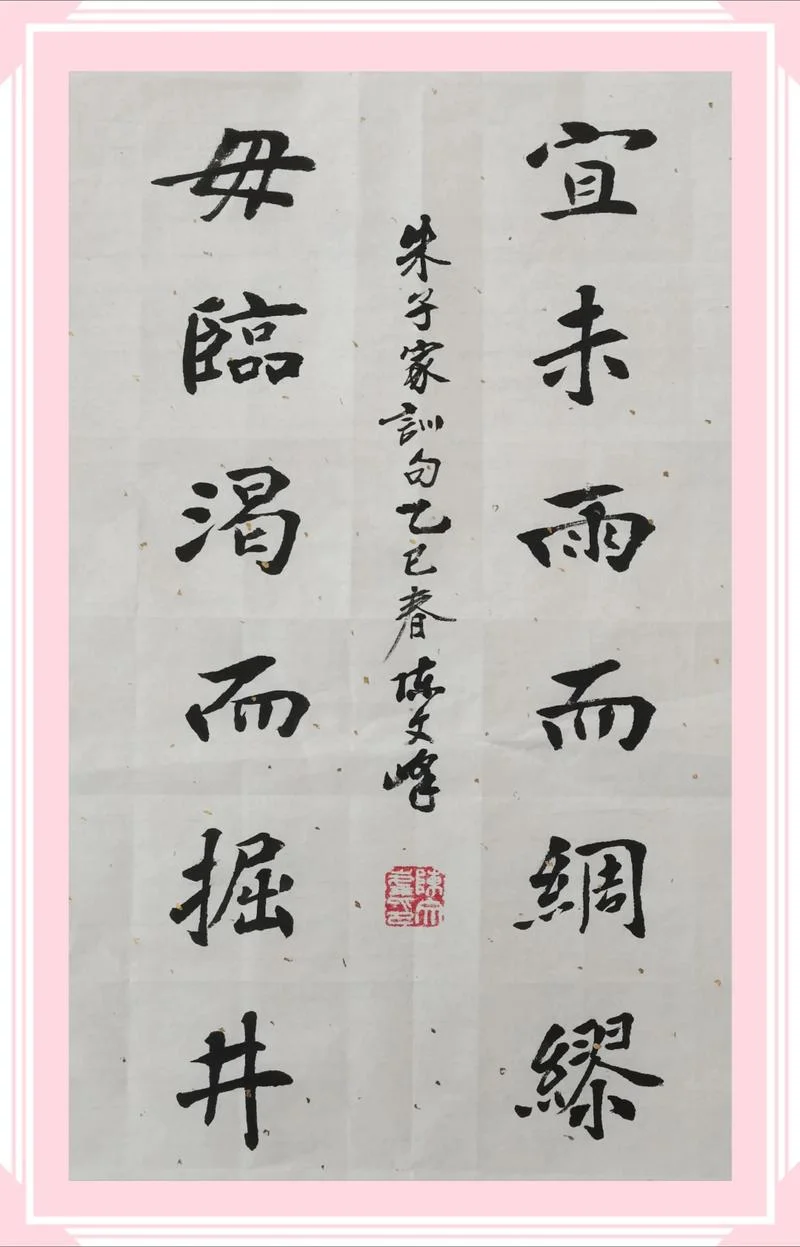 宜未雨而綢繆
毋臨渴而掘井
朱子家訓句乙巳春陳文峰